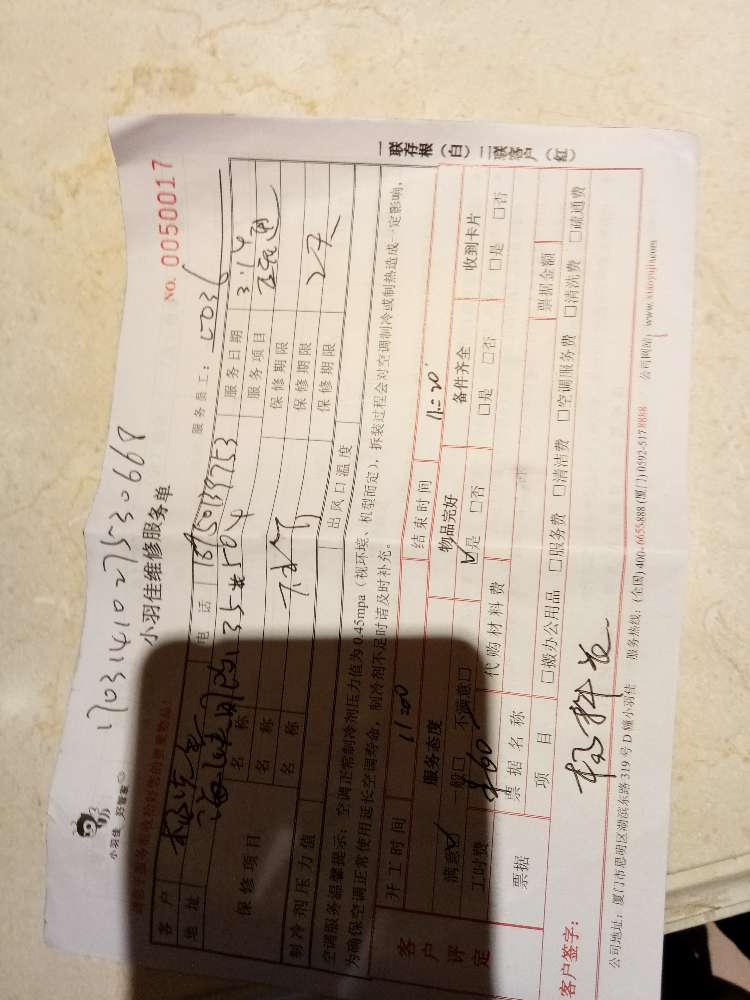 1703141027530668
小羽佳 好管家
小羽佳维修服务单
NO. 0050017
服务员工：
客户 电话 服务日期 3.14
地址 35#504 服务项目
保修项目 名称 保修期限
名称 保修期限 2天
名称 保修期限
制冷剂压力值 出风口温度
空调服务温馨提示：空调正常制冷剂压力值为0.45mpa（视环境、机型而定），拆装过程会对空调制冷或制热造成一定影响，
为确保空调正常使用延长空调寿命，制冷剂不足时请及时补充。
客户评定
开工时间 11:00 结束时间 11:20
服务态度 物品完好 备件齐全 收到卡片
满意☑ 一般□ 不满意□ ☑是 □否 □是 □否 □是 □否
工时费 ¥60 代购材料费
票据 票据名称 票据金额
项目 □搬办公用品 □服务费 □清洁费 □空调服务费 □清洗费 □疏通费
客户签字：
公司地址：厦门市思明区湖滨东路319号D幢小羽佳 服务热线：(全国)400-6655-888 (厦门)0592-5178888 公司网站：www.xiaoyujia.com
一联存根（白）二联客户（红）